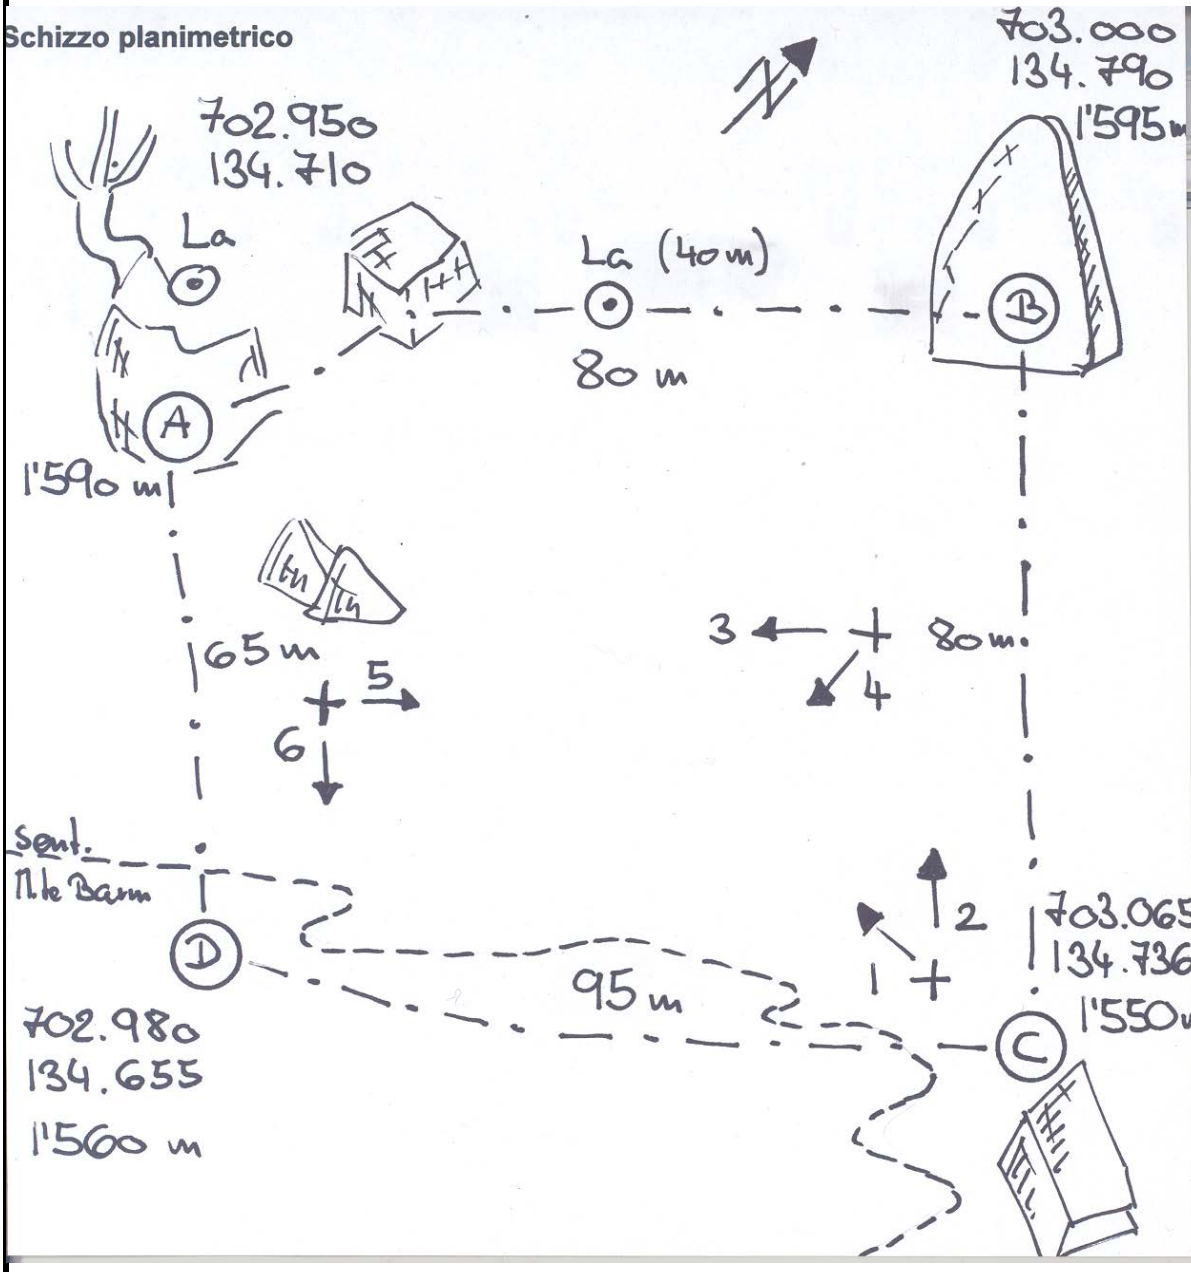 Schizzo planimetrico
703.000
134.790
1'595 m
N
702.950
134.710
La
La (40 m)
B
80 m
A
1'590 m
65 m
5
6
3
4
80 m
sent.
M.te Barm
2
1
703.065
134.736
1'550
D
95 m
C
702.980
134.655
1'560 m